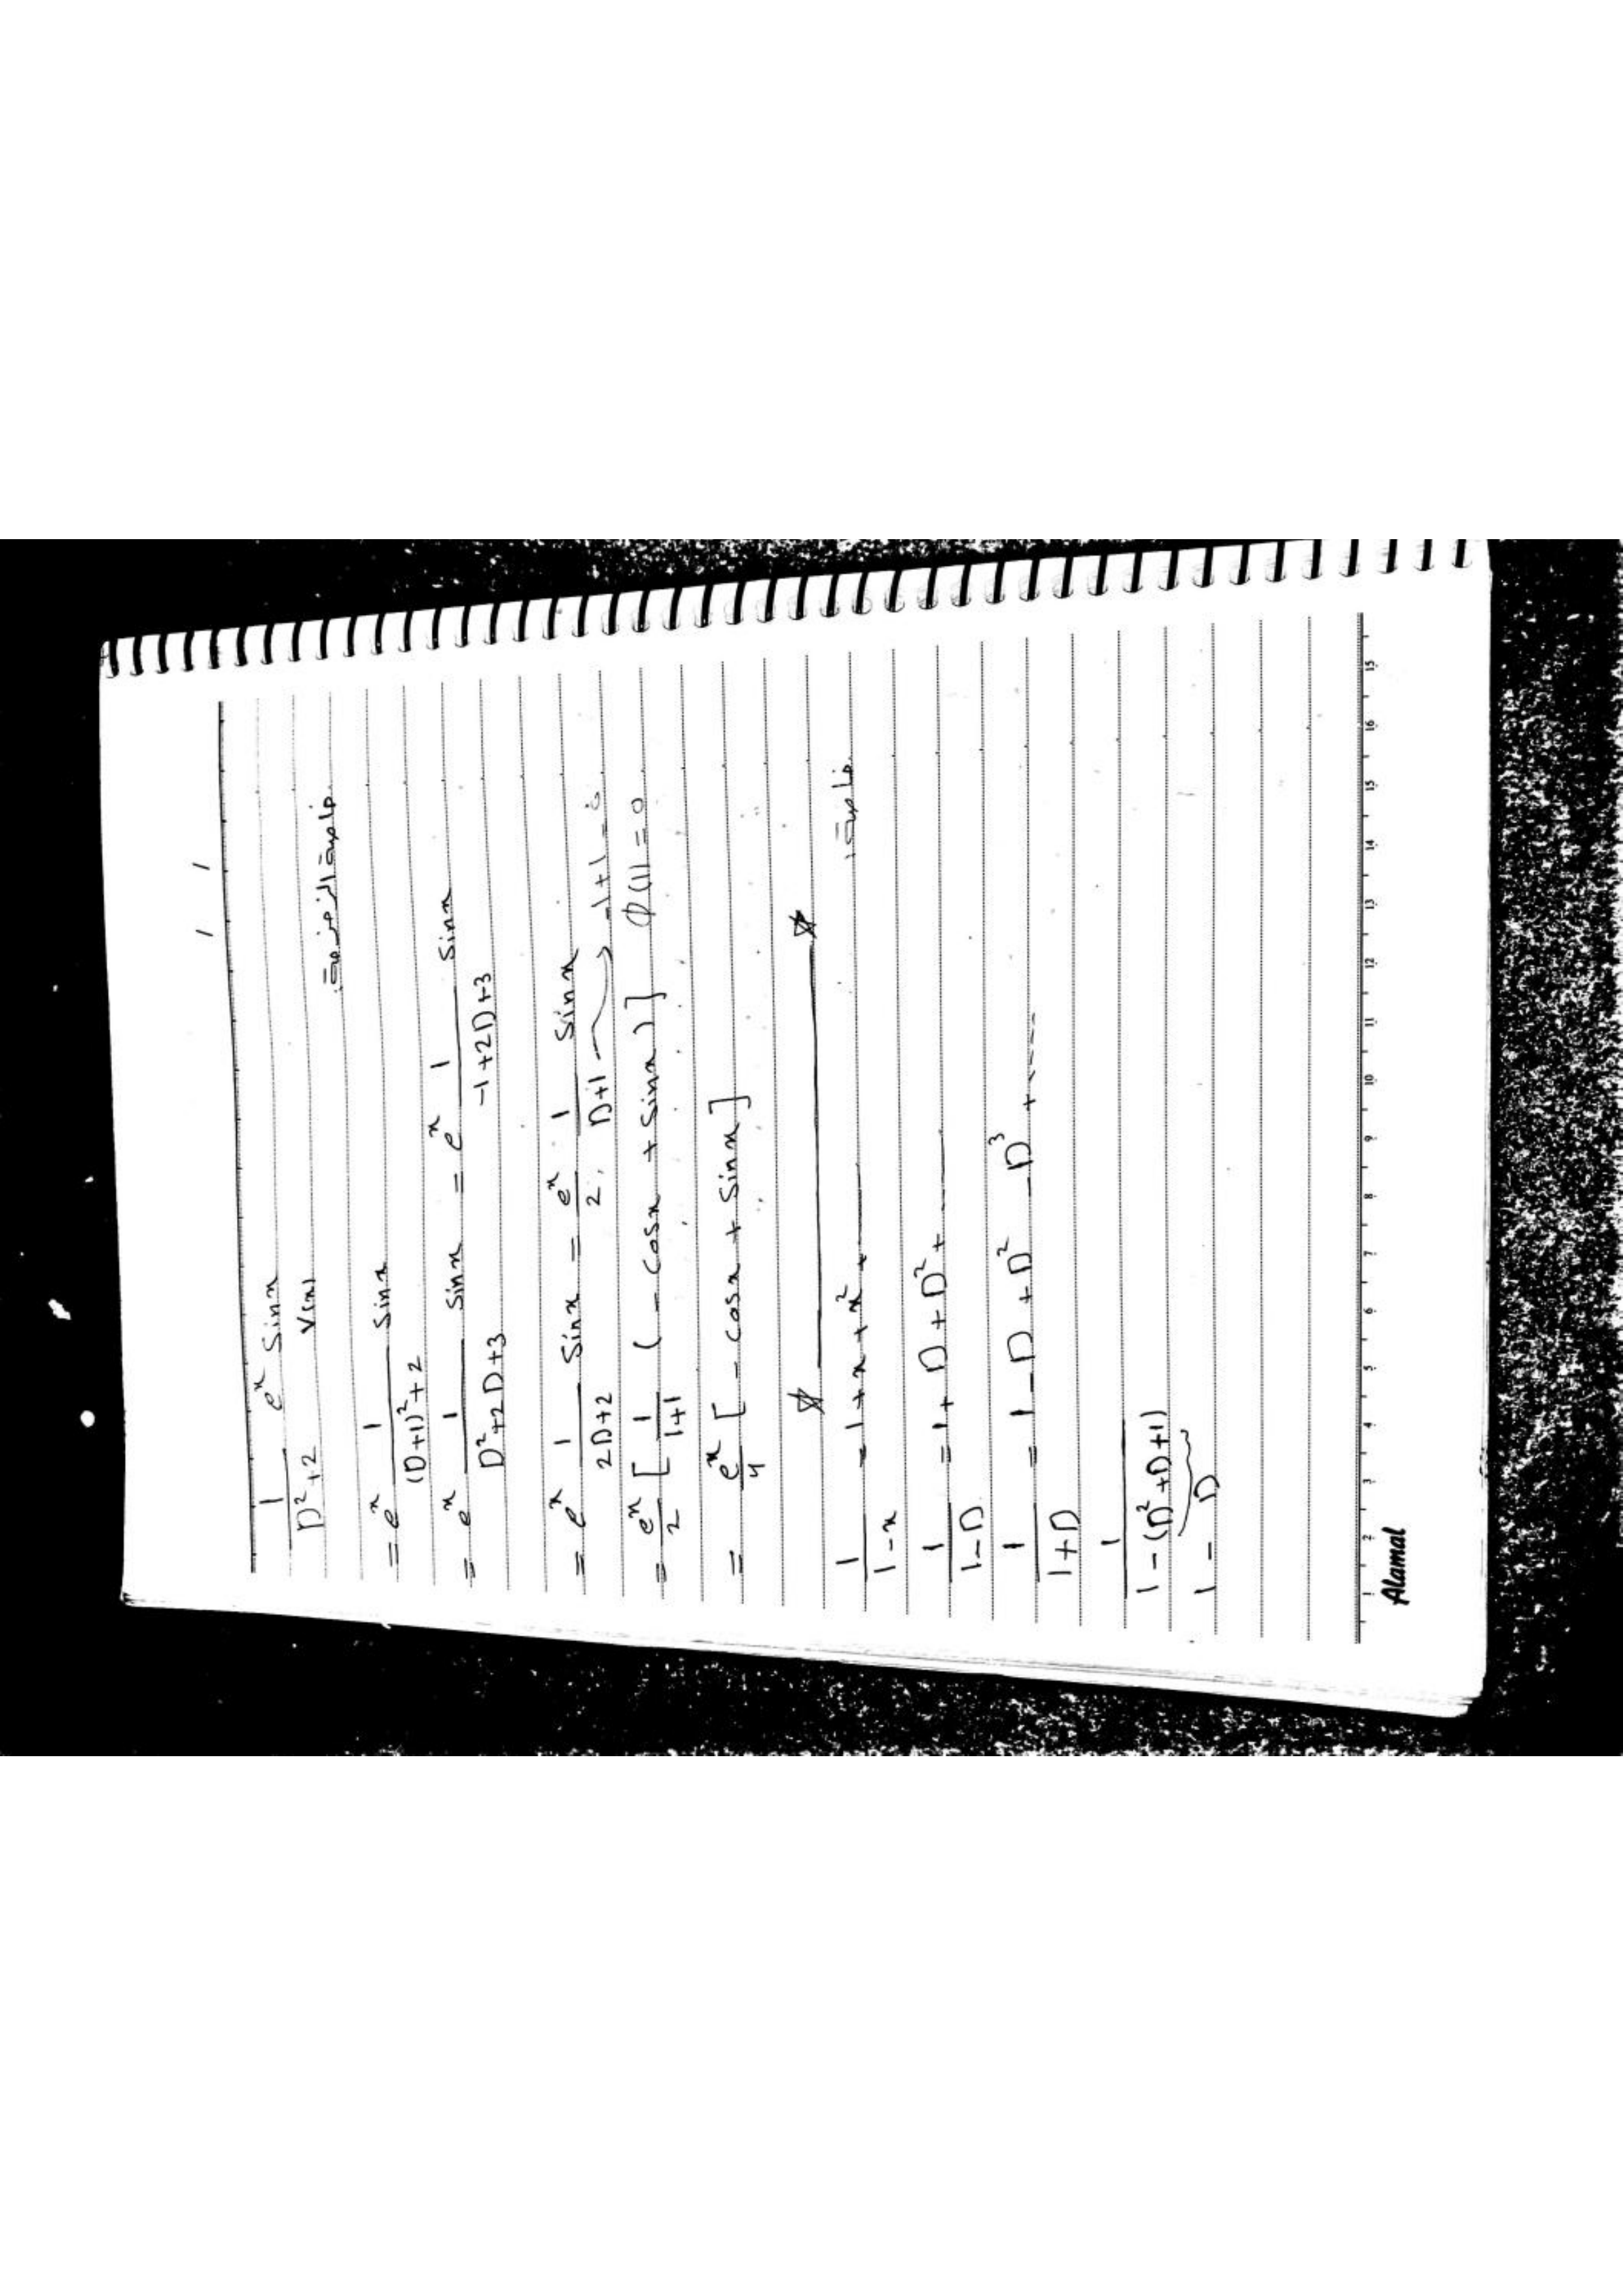 1/(D²+2) eˣ Sinx
V(x)
خاصية الزحزحة
= eˣ 1/((D+1)²+2) Sinx
= eˣ 1/(D²+2D+3) Sinx = eˣ 1/(-1+2D+3) Sinx
= eˣ 1/(2D+2) Sinx = eˣ/2 . 1/(D+1) Sinx
-1+1=0
= eˣ/2 [ 1/(1+1) ( - cosx + Sinx ) ] φ(1) = 0
= eˣ/4 [ - cosx + Sinx ]
خاصية
1/(1-x) = 1+x+x²+----
1/(1-D) = 1+D+D²+----
1/(1+D) = 1-D+D²-D³+----
1/(1-(D²+D+1))
1 - D
1 2 3 4 5 6 7 8 9 10 11 12 13 14 15 16 15
Alamal